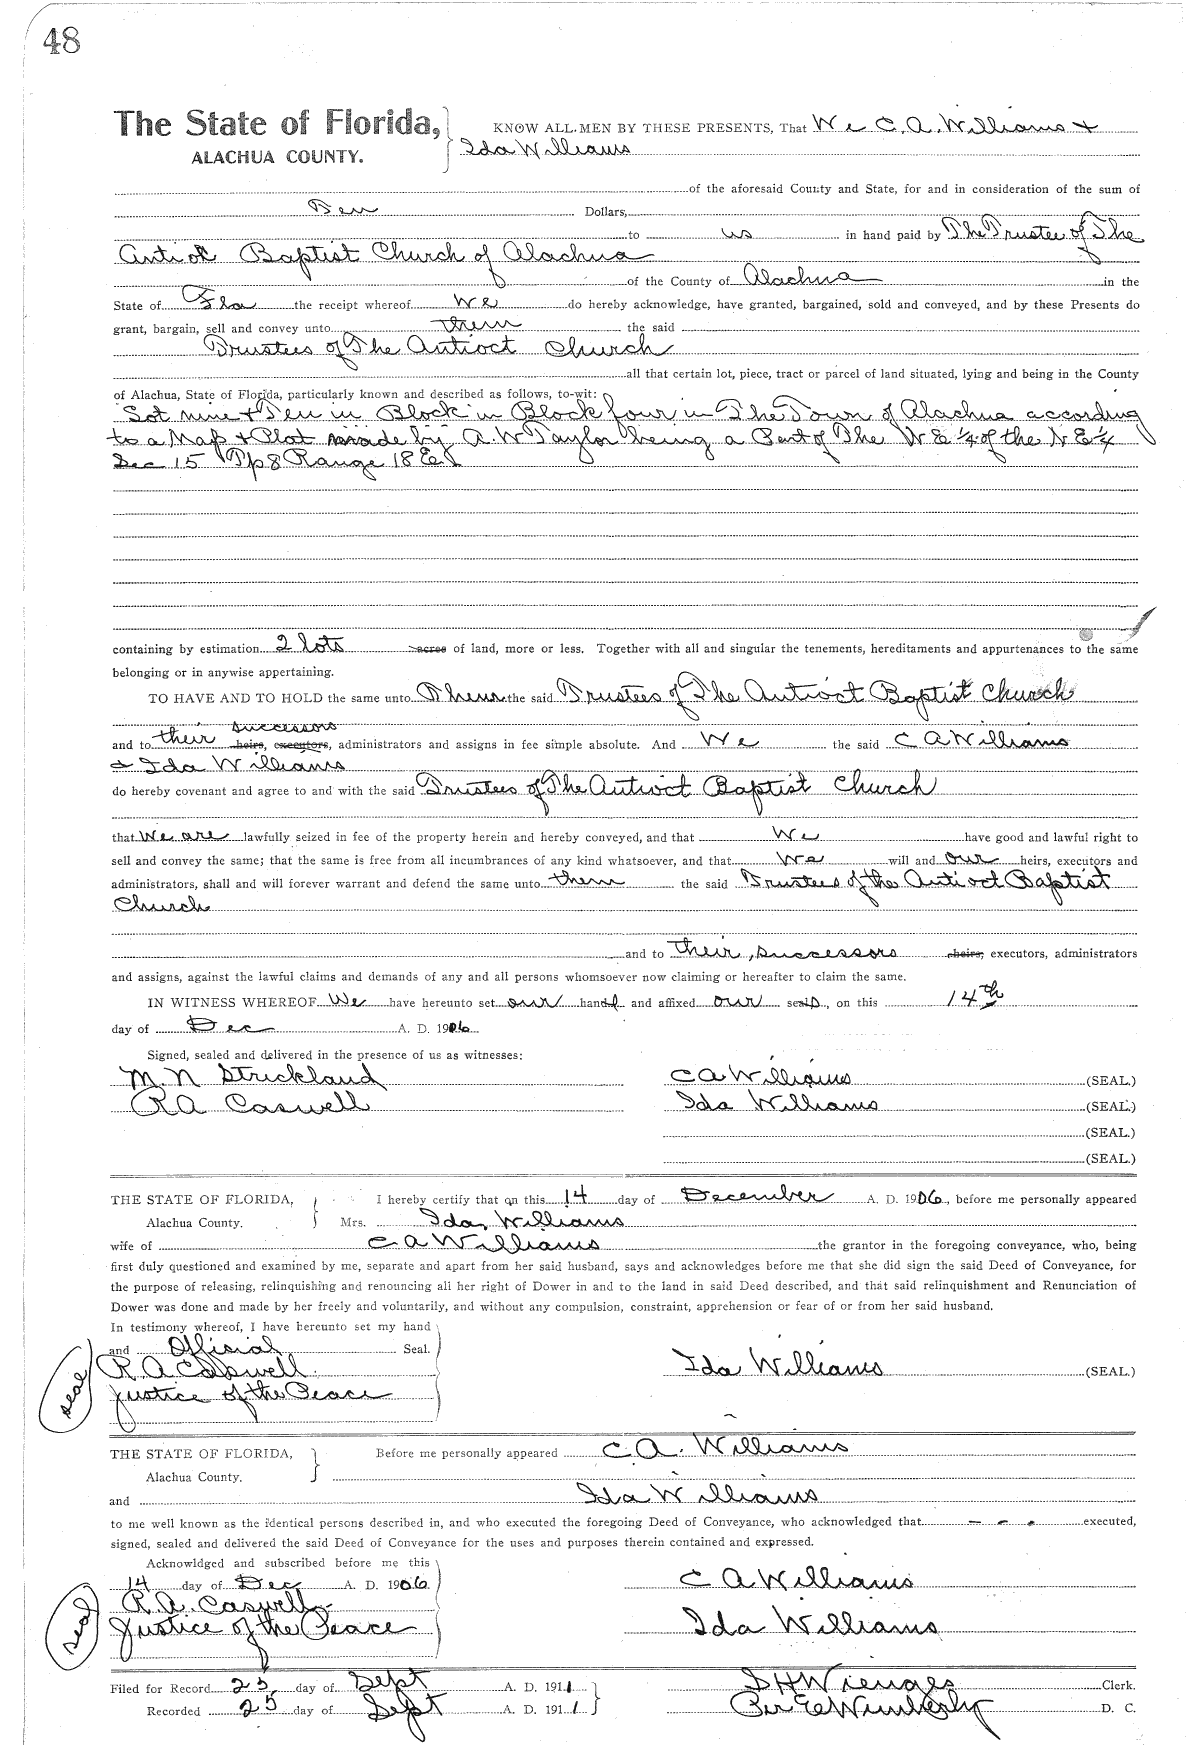 48
The State of Florida,
ALACHUA COUNTY.
KNOW ALL MEN BY THESE PRESENTS, That We C. A. Williams +
Ida Williams
of the aforesaid County and State, for and in consideration of the sum of
Ten Dollars,
to us in hand paid by The Trustee of The
Antioct Baptist Church of Alachua
of the County of Alachua in the
State of Fla the receipt whereof we do hereby acknowledge, have granted, bargained, sold and conveyed, and by these Presents do
grant, bargain, sell and convey unto them the said
Trustees of The Antioct Church
all that certain lot, piece, tract or parcel of land situated, lying and being in the County
of Alachua, State of Florida, particularly known and described as follows, to-wit:
Lot nine + Ten in Block in Block four in The Town of Alachua according
to a Map + Plat made by A. W Taylor being a Part of The N E ¼ of the N E ¼
Sec 15 Tp 8 Range 18 E
containing by estimation 2 lots acres of land, more or less. Together with all and singular the tenements, hereditaments and appurtenances to the same
belonging or in anywise appertaining.
TO HAVE AND TO HOLD the same unto Them the said Trustees of The Antioct Baptist Church
successors
and to their heirs, executors, administrators and assigns in fee simple absolute. And We the said C A Williams
+ Ida Williams
do hereby covenant and agree to and with the said Trustees of The Antioct Baptist Church
that We are lawfully seized in fee of the property herein and hereby conveyed, and that We have good and lawful right to
sell and convey the same; that the same is free from all incumbrances of any kind whatsoever, and that We will and our heirs, executors and
administrators, shall and will forever warrant and defend the same unto them the said Trustees of the Antioct Baptist
Church
and to their, successors heirs, executors, administrators
and assigns, against the lawful claims and demands of any and all persons whomsoever now claiming or hereafter to claim the same.
IN WITNESS WHEREOF We have hereunto set our hand and affixed our seals, on this 14th
day of Dec A. D. 1906
Signed, sealed and delivered in the presence of us as witnesses:
M. N Strickland C A Williams (SEAL.)
R A Caswell Ida Williams (SEAL.)
(SEAL.)
(SEAL.)
THE STATE OF FLORIDA, I hereby certify that on this 14 day of December A. D. 1906, before me personally appeared
Alachua County. Mrs. Ida Williams
wife of C A Williams the grantor in the foregoing conveyance, who, being
first duly questioned and examined by me, separate and apart from her said husband, says and acknowledges before me that she did sign the said Deed of Conveyance, for
the purpose of releasing, relinquishing and renouncing all her right of Dower in and to the land in said Deed described, and that said relinquishment and Renunciation of
Dower was done and made by her freely and voluntarily, and without any compulsion, constraint, apprehension or fear of or from her said husband.
In testimony whereof, I have hereunto set my hand
and Official Seal.
seal R A Caswell Ida Williams (SEAL.)
Justice of the Peace
THE STATE OF FLORIDA, Before me personally appeared C. A. Williams
Alachua County.
and Ida Williams
to me well known as the identical persons described in, and who executed the foregoing Deed of Conveyance, who acknowledged that - - - executed,
signed, sealed and delivered the said Deed of Conveyance for the uses and purposes therein contained and expressed.
Acknowldged and subscribed before me this
14 day of Dec A. D. 1906 C A Williams
seal R. A. Caswell
Justice of the Peace Ida Williams
Filed for Record 25 day of Sept A. D. 1911 S H Wienges Clerk.
Recorded 25 day of Sept A. D. 1911 Per E Wimberly D. C.